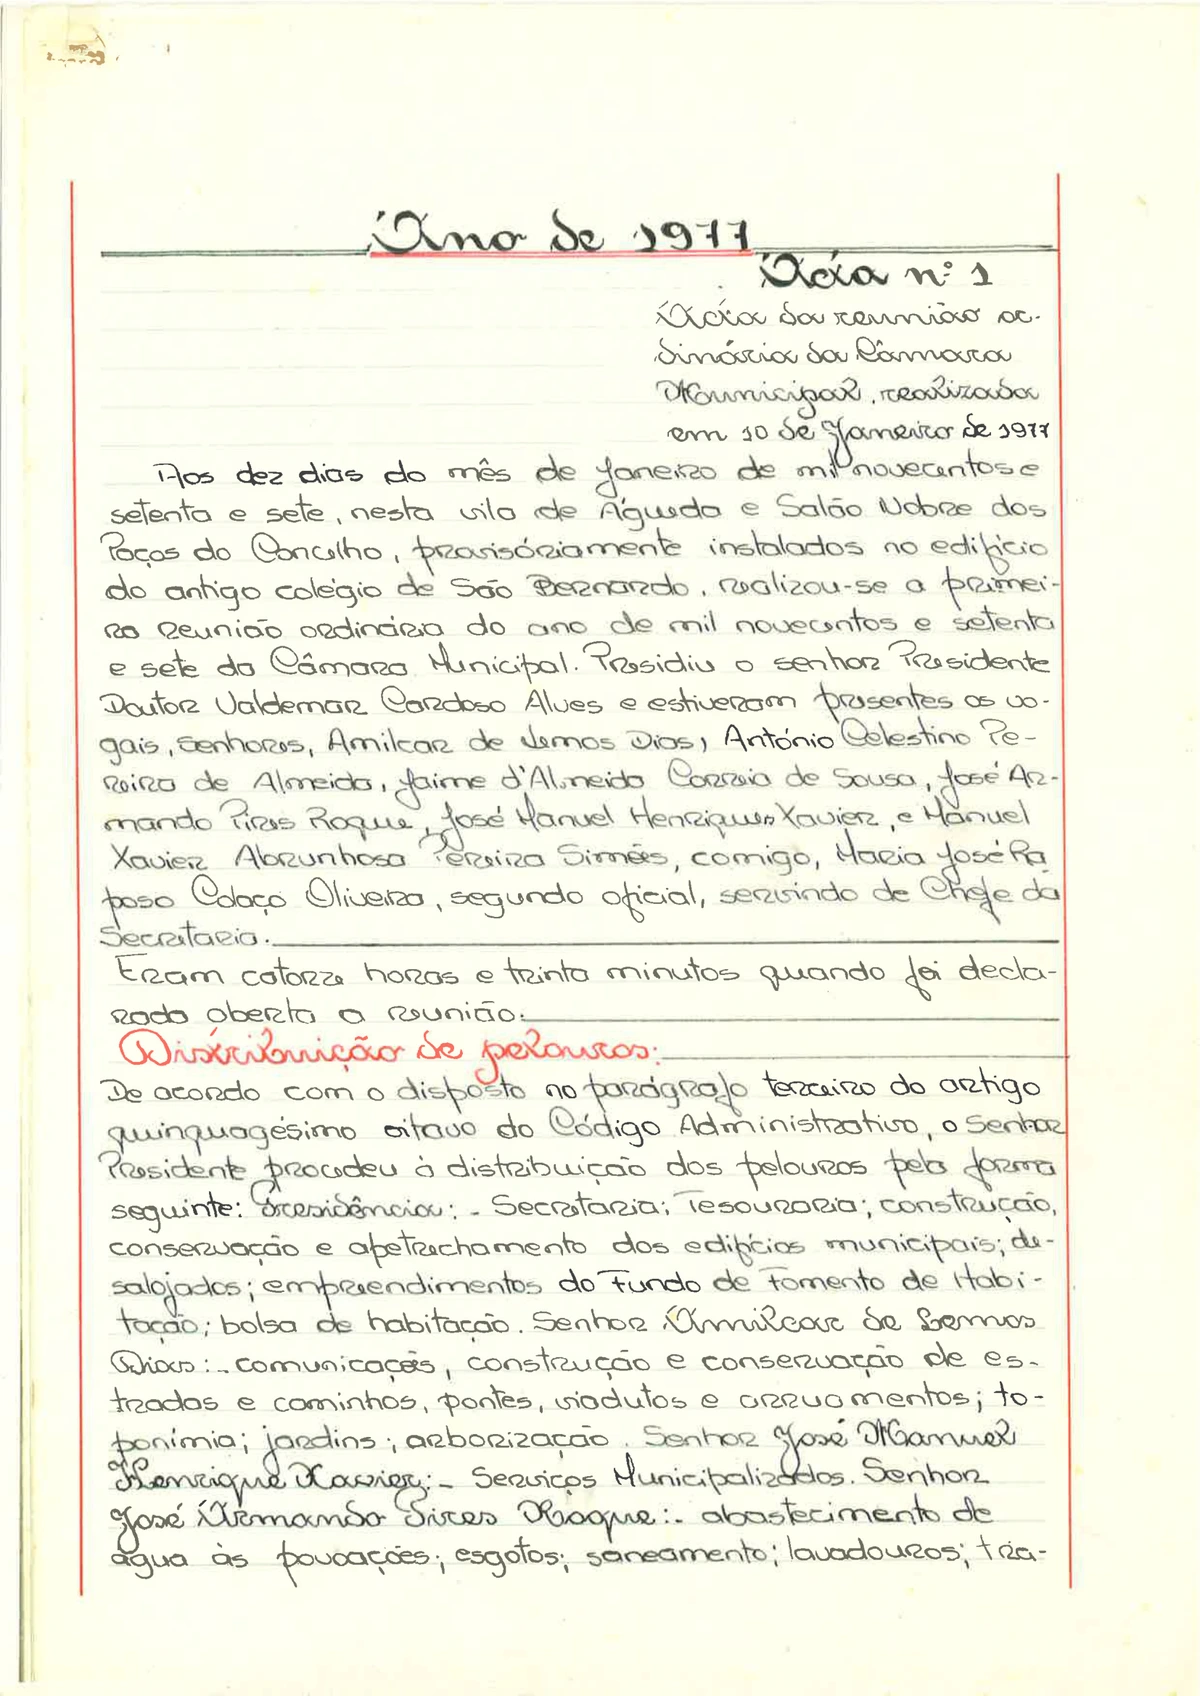 Ano de 1977
Acta nº 1
Acta da reunião or-
dinária da Câmara
Municipal, realizada
em 10 de Janeiro de 1977
Aos dez dias do mês de Janeiro de mil novecentos e
setenta e sete, nesta vila de Águeda e Salão Nobre dos
Paços do Concelho, provisóriamente instalados no edifício
do antigo colégio de São Bernardo, realizou-se a primei-
ra reunião ordinária do ano de mil novecentos e setenta
e sete da Câmara Municipal. Presidiu o senhor Presidente
Doutor Valdemar Cardoso Alves e estiveram presentes os vo-
gais, senhores, Amilcar de Lemos Dias, António Celestino Pe-
reira de Almeida, Jaime d'Almeida Correia de Sousa, José Ar-
mando Pires Roque, José Manuel Henriques Xavier, e Manuel
Xavier Abrunhosa Pereira Simões, comigo, Maria José Ra
poso Colaço Oliveira, segundo oficial, servindo de Chefe da
Secretaria.
Eram catorze horas e trinta minutos quando foi decla-
rada aberta a reunião.
Distribuição de pelouros:
De acordo com o disposto no parágrafo terceiro do artigo
quinquagésimo oitavo do Código Administrativo, o Senhor
Presidente procedeu à distribuição dos pelouros pela forma
seguinte: Presidência: - Secretaria; Tesouraria; construção,
conservação e apetrechamento dos edifícios municipais; de-
salojados; empreendimentos do Fundo de Fomento de Habi-
tação; bolsa de habitação. Senhor Amilcar de Lemos
Dias: - comunicações, construção e conservação de es-
tradas e caminhos, pontes, viadutos e arruamentos; to-
ponímia; jardins; arborização. Senhor José Manuel
Henrique Xavier: - Serviços Municipalizados. Senhor
José Armando Pires Roque: - abastecimento de
água às povoações; esgotos; saneamento; lavadouros; tria-